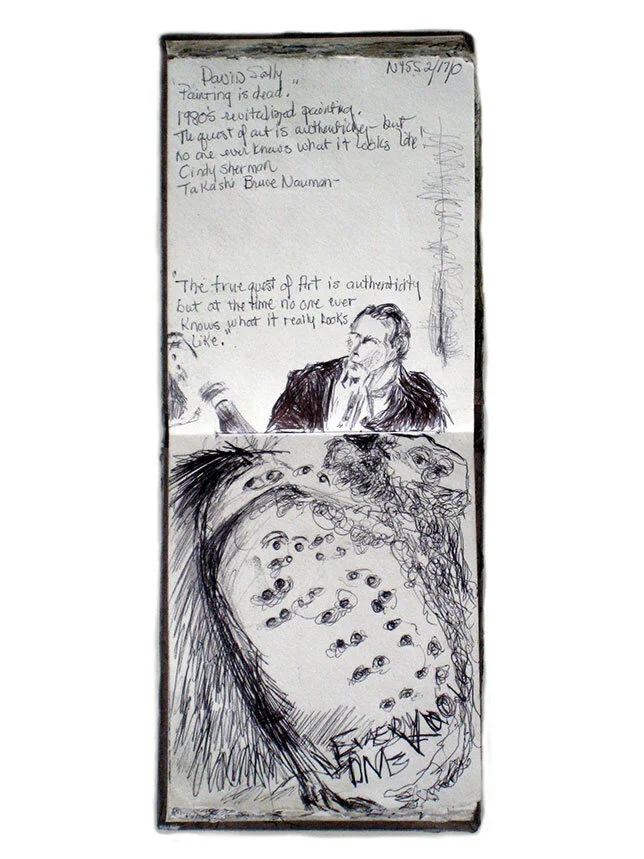 David Sally
NYSS 2/17/0
Painting is dead."
1980's revitalized painting.
The quest of art is authenticity - but
no one ever knows what it looks like!
Cindy Sherman
Takashi Bruce Nauman-
"The true quest of Art is authenticity
but at the time no one ever
knows what it really looks
like."
EVERY
ONE